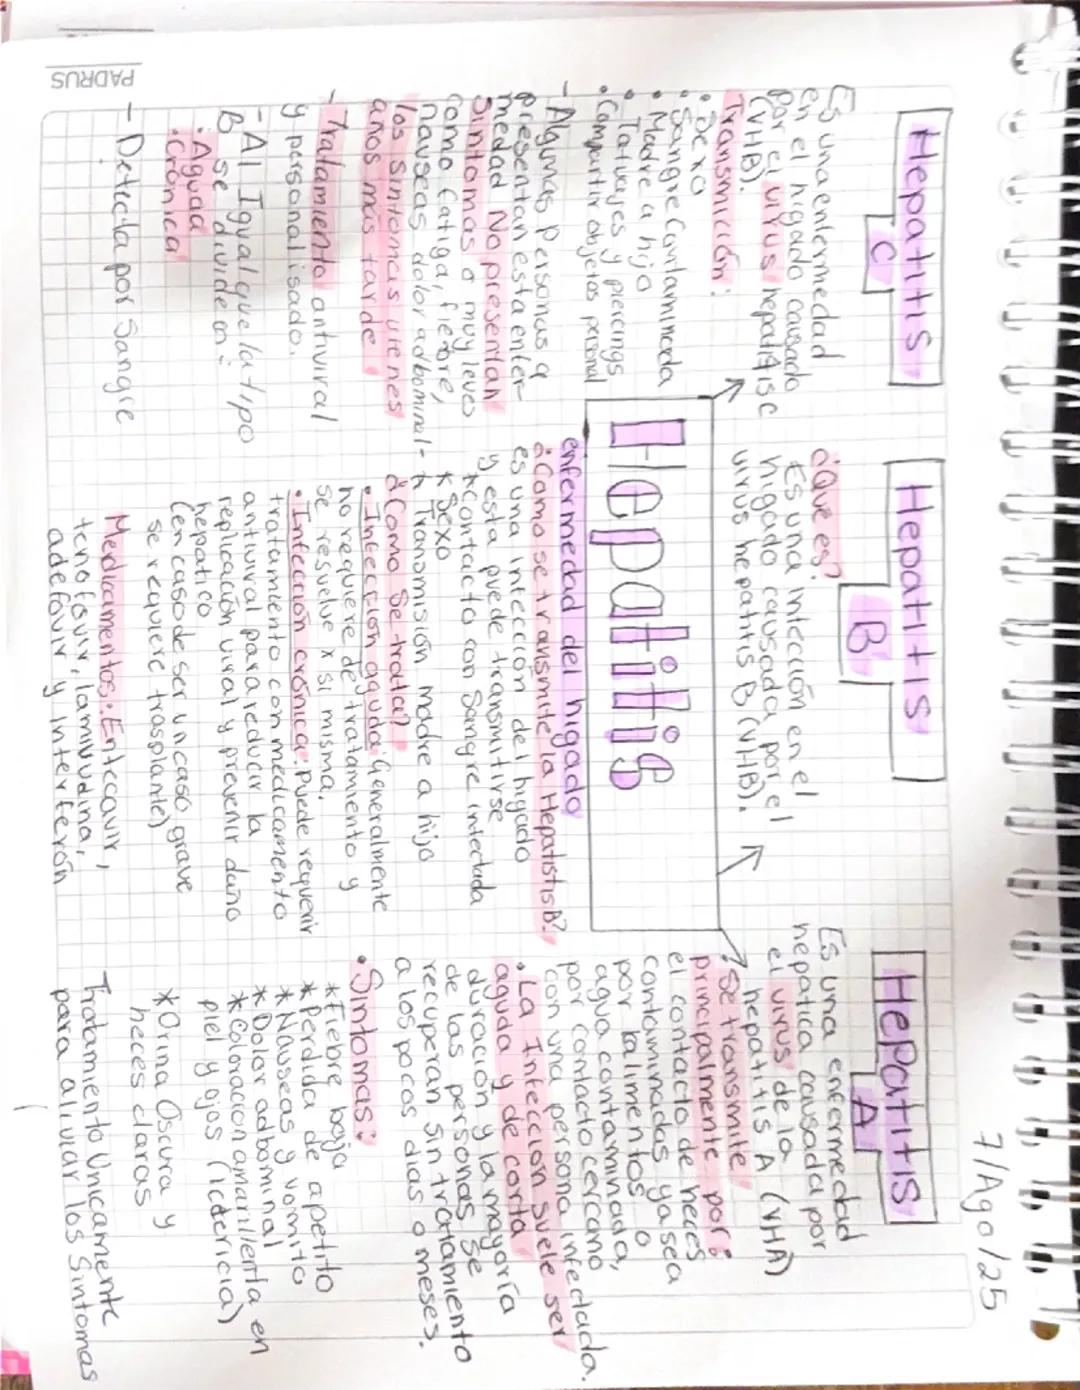 7/Ago/25
Hepatitis
C
Es una enfermedad
en el higado causado
por el virus hepatitis c
(VHB).
Transmición:
• Sexo
• Sangre Contaminada
• Madre a hijo
• Tatuages y piercings
• Compartir objetos personal
- Algunas personas q
presentan esta enfer-
medad No presentan
Sintomas o muy leves
como fatiga, fiebre,
nauseas dolor adbominal-
los sintomas vienes
años más tarde
- Tratamiento antiviral
y personalisado.
- Al Igual que la tipo
B se divide en:
• Aguda
• Crónica
- Detecta por Sangre
Hepatitis
B
¿Que es?
Es una infección en el
higado causada por el
virus hepatitis B (VHB).
Hepatitis
enfermedad del higado
¿Como se transmite la Hepatistis B?
es una infección del higado
y esta puede transmitirse
* Contacto con Sangre infectada
* Sexo
* Transmisión madre a hijo
¿Como Se trata?
• Infección aguda: Generalmente
no requiere de tratamiento y
se resuelve x si misma.
• Infección crónica: puede requerir
tratamiento con medicamento
antiviral para reducir la
replicación viral y prevenir daño
hepatico
(en caso de ser un caso grave
se requiere trasplante)
Medicamentos: Entecavir,
tenofovir, lamivudina,
adefovir y interferón
Hepatitis
A
Es una enfermedad
hepatica causada por
el virus de la
hepatitis A (VHA)
Se transmite
principalmente por:
el contacto de heces
contaminadas ya sea
por alimentos o
agua contaminada,
por contacto cercano
con una persona infectada.
• La Infección suele ser
aguda y de corta
duración y la mayoría
de las personas se
recuperan sin tratamiento
a los pocos dias o meses.
• Sintomas:
* Fiebre baja
* Perdida de apetito
* Nauseas y vomito
* Dolor adbominal
* Coloracion amarillenta en
piel y ojos (ictericia)
* Orina Oscura y
heces claras
Tratamiento Unicamente
para aliviar los Sintomas
PADRUS